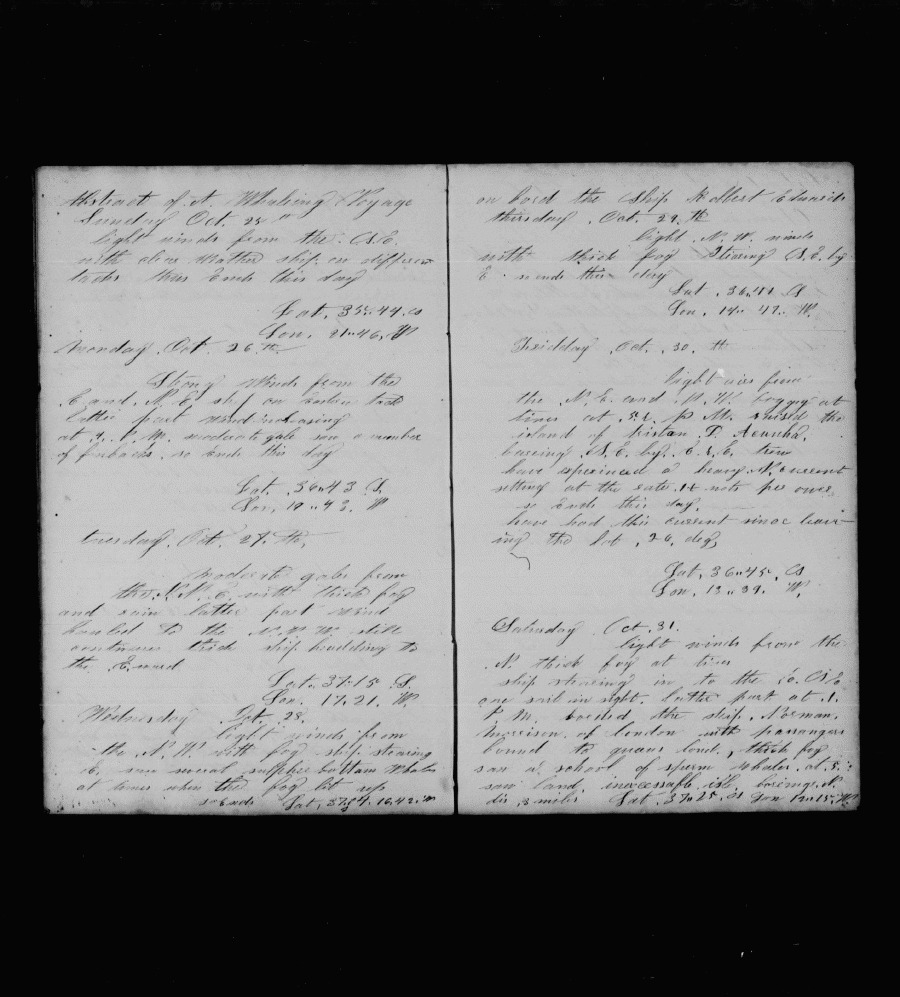 Abstract of A Whaling Voyage
Sunday Oct. 25 th
light winds from the S.E.
with clear weather ship on different
tacks thus Ends this day
Lat. 35.. 44. S
Lon. 21.. 46. W
Monday. Oct. 26. th
Strong winds from the
E and N. E ship on tack
latter part wind increasing
at P. M. moderate gale saw a number
of finbacks. so Ends this day
Lat. 36.. 43 S.
Lon. 19.. 43. W
tuesday. Oct. 27. th.
moderate gales from
the N. N. E. with thick fog
and rain latter part wind
hauled to the N. N. W. still
continues thick ship heading to
the E.ward
Lat. 37.. 15 S.
Lon. 17. 21. W.
Wednesday Oct. 28.
light winds from
the N. W. with fog ship stearing
E. saw several sulpher bottom Whales
at times when the fog lit up
so Ends Lat. 37 16. 42. W
on bord the Ship Robbert Edwards
thirsday. Oct. 29. th
light N. W. winds
with thick fog Stearing S. E. by
E. ends this day
Lat. 36.. 44 S
Lon. 14.. 47. W.
Fridday Oct. 30. th
light airs from
the N. E. and N. W. foggy at
times at P. M. raised the
island of tristan D. Acunha.
bearing S. E. by. E. & E. true
have experinced a heavy N. current
setting at the rate 1½ nots per ower
so Ends this day.
have had this current since leav-
ing the lat. 26. deg,
Lat. 36.. 45. S
Lon. 13.. 39. W.
Saturday Oct. 31.
light winds from the
N. thick fog at times
ship stearing in to the E. S E
one sail in sight. latter part at 1.
P. M. borded the ship. Norman.
Morrison. of london with passangers
bound to land., thick fog
saw a school of sperm whales. at 5.
saw land, inaccessable isle. bearing. N.
dis. 3 miles Lat. 37.. 25. S Lon 12.. 15. W.